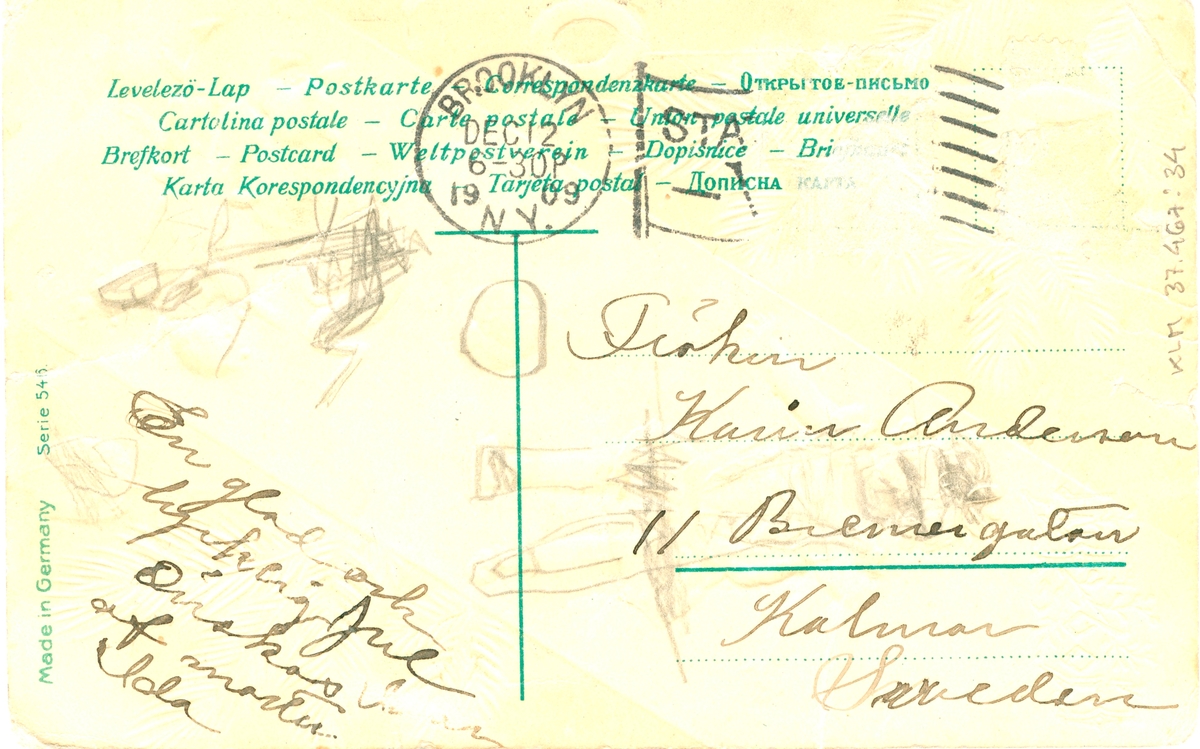 Levelezö-Lap – Postkarte – Correspondenzkarte – Открытое-письмо
Cartolina postale – Carte postale – Union postale universelle
Brefkort – Postcard – Weltpostverein – Dopisnice – Bri
Karta Korespondencyjna – Tarjeta postal – Дописна карта
BROOKLYN
DEC 12
6-30P
1909
N.Y.
STA
KLM 37.467:34
Serie 546.
Made in Germany
En
glad och
lyckelig Jul
Önskas
af moster
Ida
Fröken
Karin Anderson
11 Bremergatan
Kalmar
Sweden